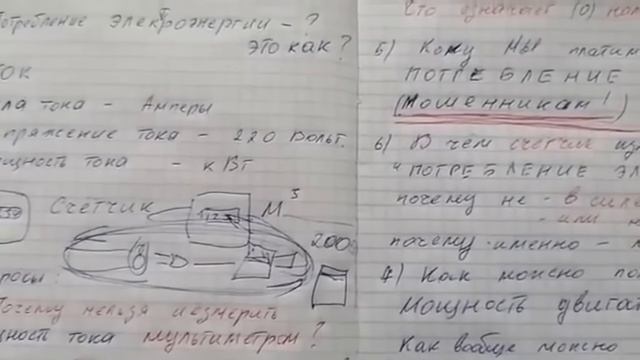 Потребление электроэнергии - ?
это как?
ток
ла тока - Амперы
пряжение тока - 220 Вольт.
щность тока - кВт
Счётчик
М³
200
росы:
Почему нельзя измерить
щность тока мультиметром?
Что означает (0) нол
5) Кому МЫ платим
ПОТРЕБЛЕНИЕ
(Мошенникам!)
6) В чём счётчик из
"ПОТРЕБЛЕНИЕ ЭЛ
почему не - в силе
- или н
почему именно -
7) Как можно по
Мощность двига
Как вообще можно